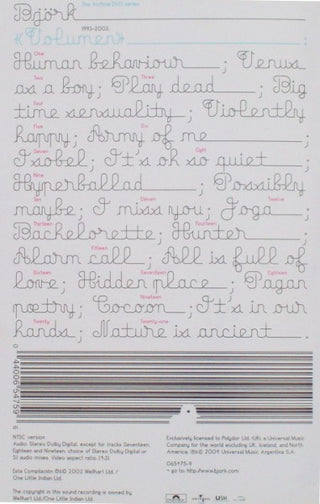 The Archive DVD series
Björk
1993-2003
«Volumen» ;
One
Human behaviour ; Venus
Two Three
as a boy; Play dead ; Big
Four
time sensuality ; Violently
Five Six
happy; Army of me ;
Seven Eight
Isobel; It's oh so quiet ;
Nine
Hyperballad ; Possibly
Ten Eleven Twelve
maybe; I miss you; Joga ;
Thirteen Fourteen
Bachelorette; Hunter ;
Fifteen
Alarm call ; All is full of
Sixteen Seventeen Eighteen
love; Hidden place ; Pagan
Nineteen
poetry; Cocoon ; It's in our
Twenty Twenty-one
hands ; Nature is ancient .
NTSC version
Audio: Stereo Dolby Digital, except for tracks Seventeen,
Eighteen and Nineteen: choice of Stereo Dolby Digital or
5.1 audio mixes. Video aspect ratio 1.33.
Esta Compilación ℗© 2002 Wellhart Ltd./
One Little Indian Ltd.
The copyright in this sound recording is owned by
Wellhart Ltd/One Little Indian Ltd.
Exclusively licensed to Polydor Ltd. (UK) a Universal Music
Company for the world excluding UK, Iceland, and North
America. ℗© 2004 Universal Music Argentina S.A.
065475-9
→ go to: http://www.bjork.com
polydor